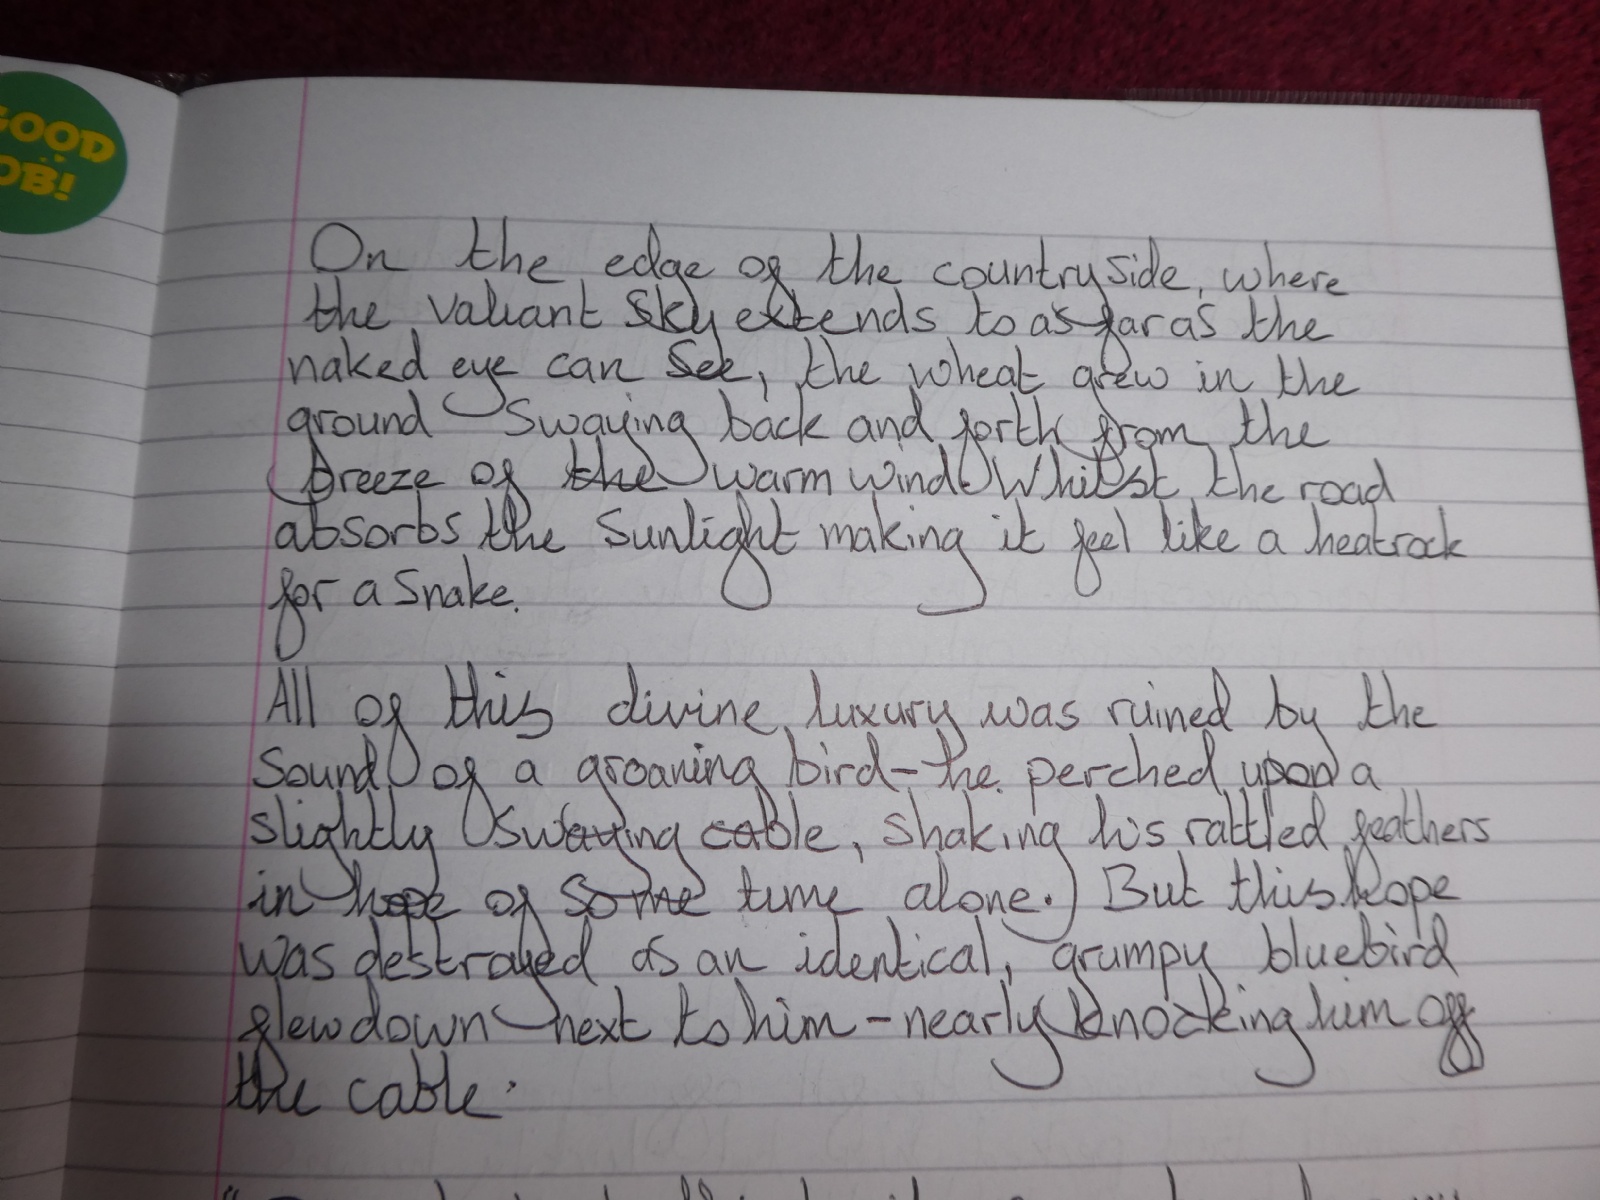 GOOD
OB!
On the edge of the countryside, where
the valiant sky extends to as far as the
naked eye can see, the wheat grew in the
ground swaying back and forth from the
breeze of the warm wind. Whilst the road
absorbs the sunlight making it feel like a heatrock
for a snake.
All of this divine luxury was ruined by the
sound of a groaning bird - he perched upon a
slightly swaying cable, shaking his rattled feathers
in hope of some time alone. But this hope
was destroyed as an identical, grumpy bluebird
flew down next to him - nearly knocking him off
the cable.